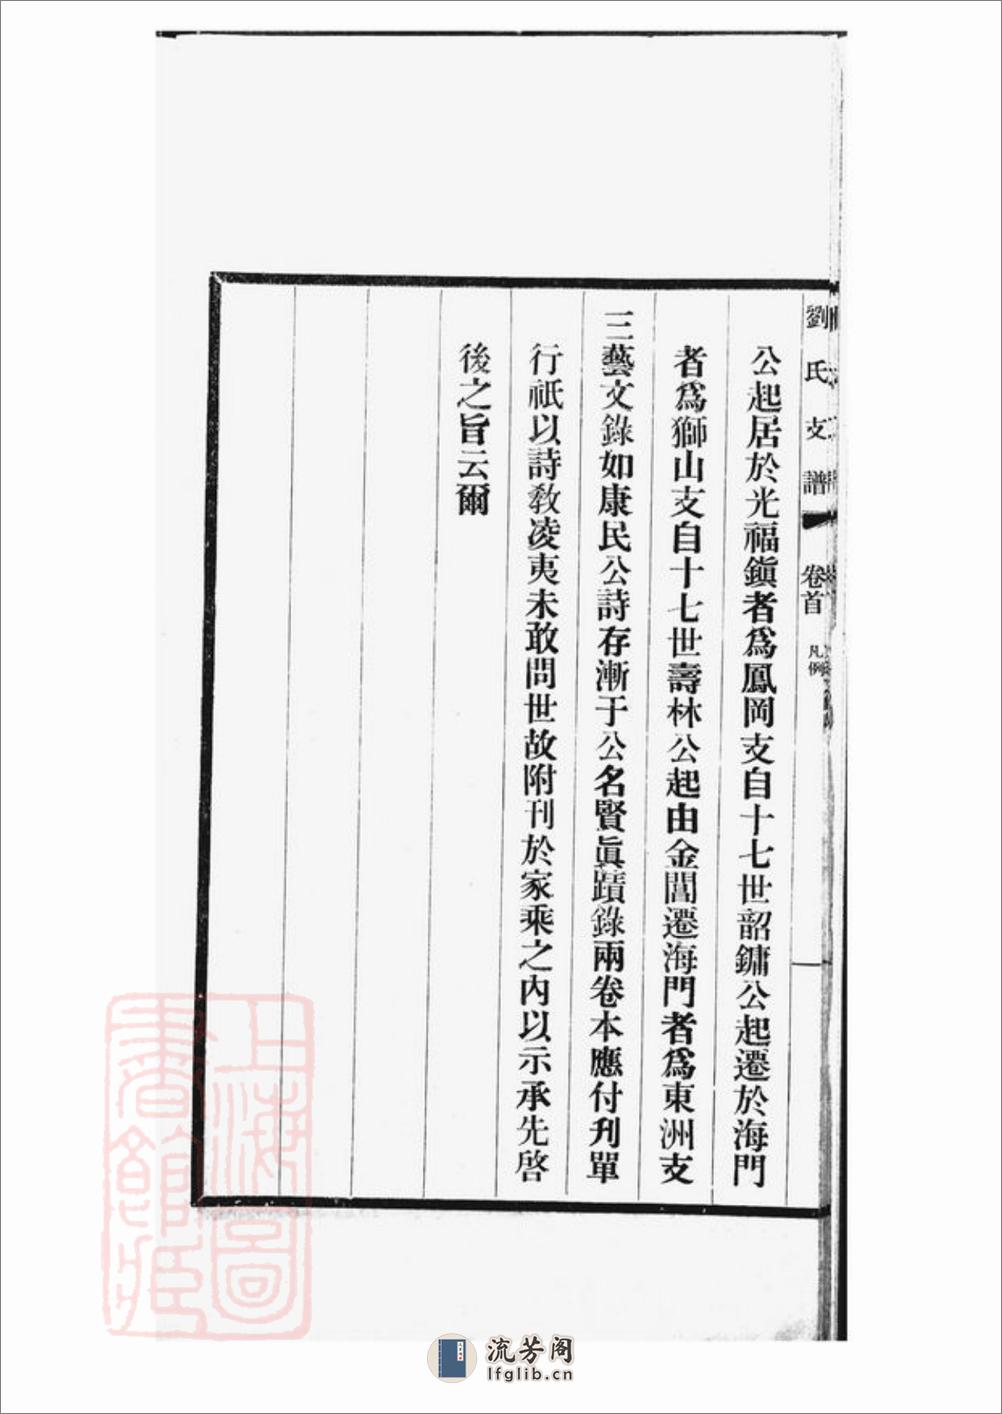 劉氏支譜 卷首 凡例 一
公起居於光福鎭者爲鳳岡支自十七世韶鏞公起遷於海門
者爲獅山支自十七世壽林公起由金閶遷海門者爲東洲支
三藝文錄如康民公詩存漸于公名賢眞蹟錄兩卷本應付刋單
行祇以詩敎凌夷未敢問世故附刊於家乘之內以示承先啓
後之旨云爾
上海圖
書館藏
流芳阁
lfglib.cn